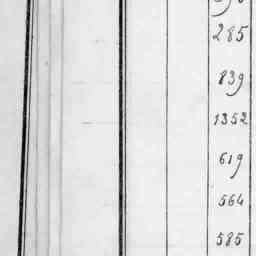 285
839
1352
619
564
585